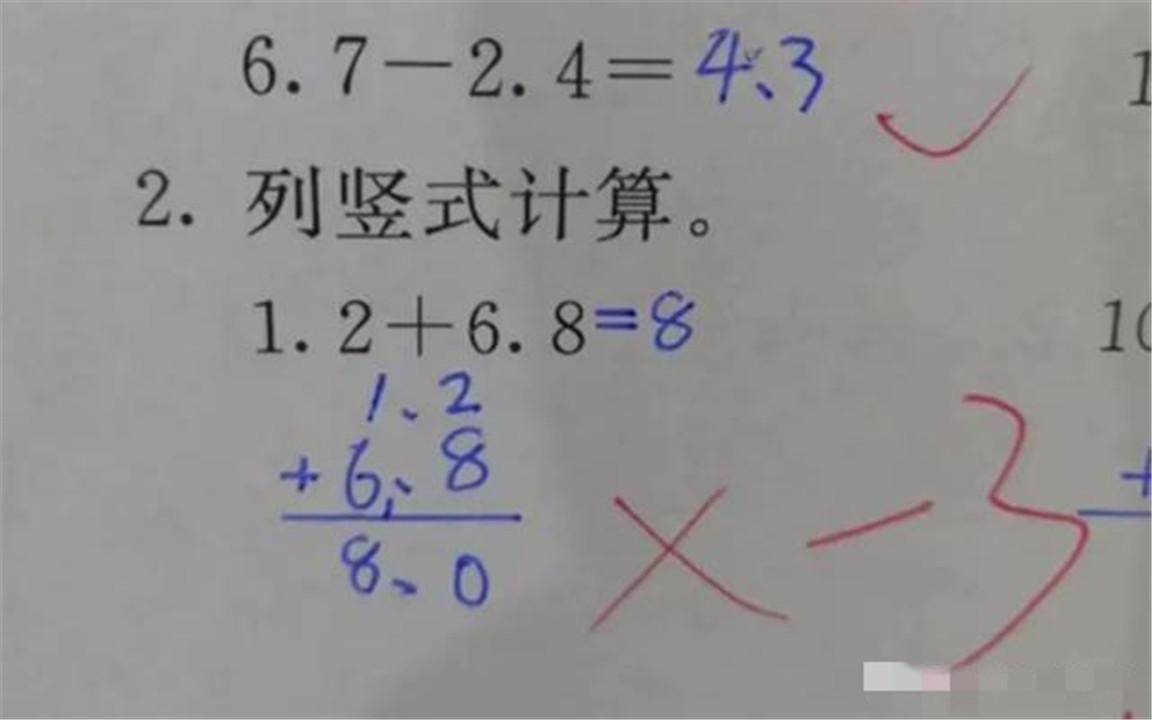 6.7-2.4=4.3
1
2. 列竖式计算。
1.2+6.8=8
10
1.2
+6.8
+
8.0
×-3